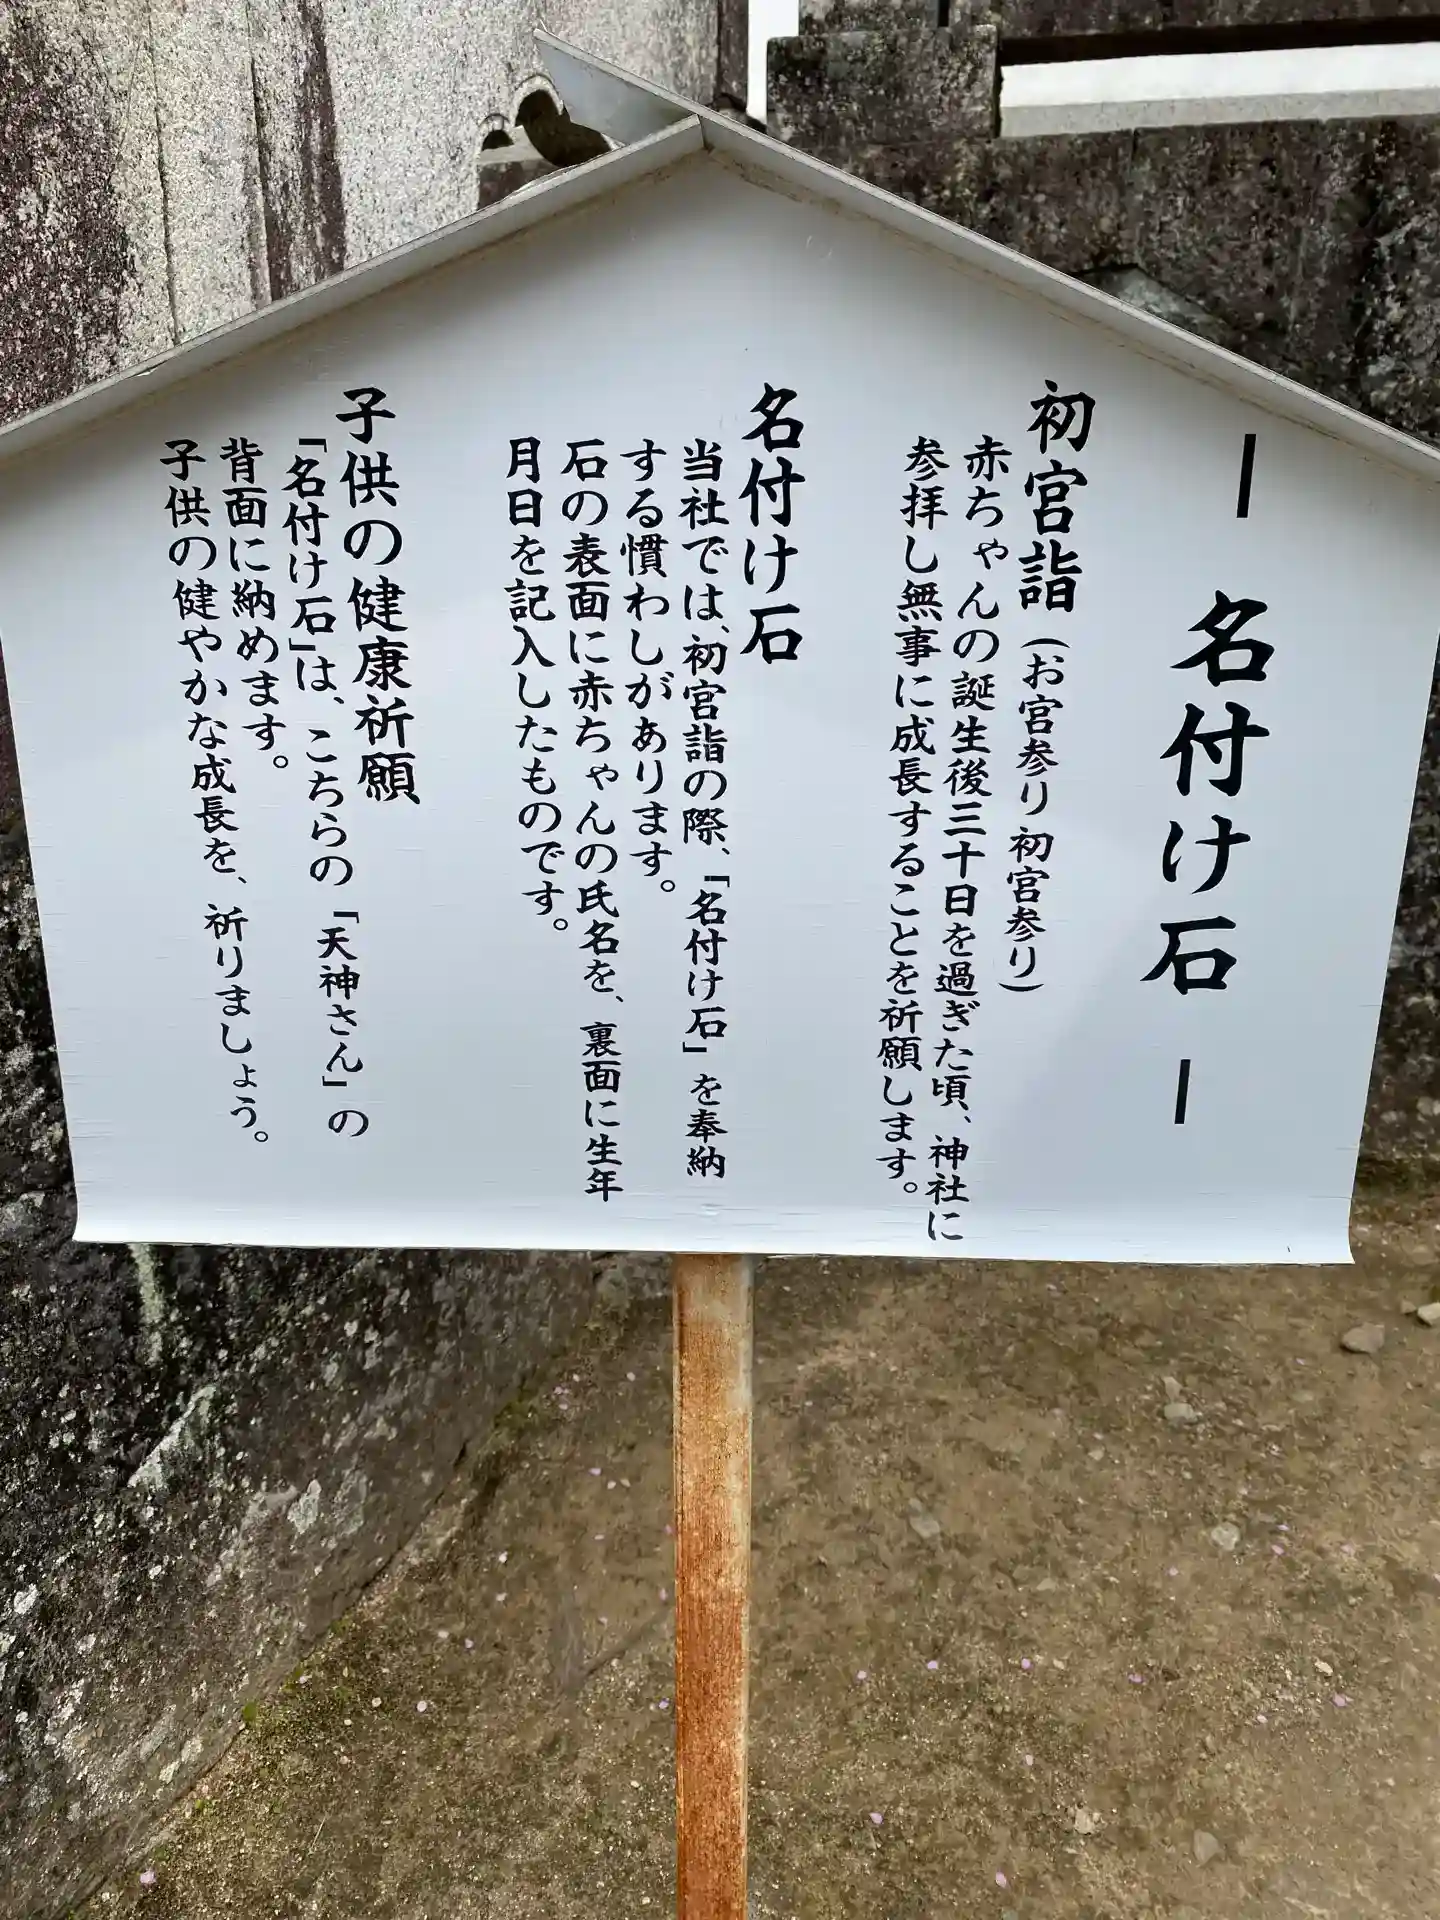 ― 名付け石 ―
初宮詣（お宮参り 初宮参り）
赤ちゃんの誕生後三十日を過ぎた頃、神社に
参拝し無事に成長することを祈願します。
名付け石
当社では、初宮詣の際、「名付け石」を奉納
する慣わしがあります。
石の表面に赤ちゃんの氏名を、裏面に生年
月日を記入したものです。
子供の健康祈願
「名付け石」は、こちらの「天神さん」の
背面に納めます。
子供の健やかな成長を、祈りましょう。